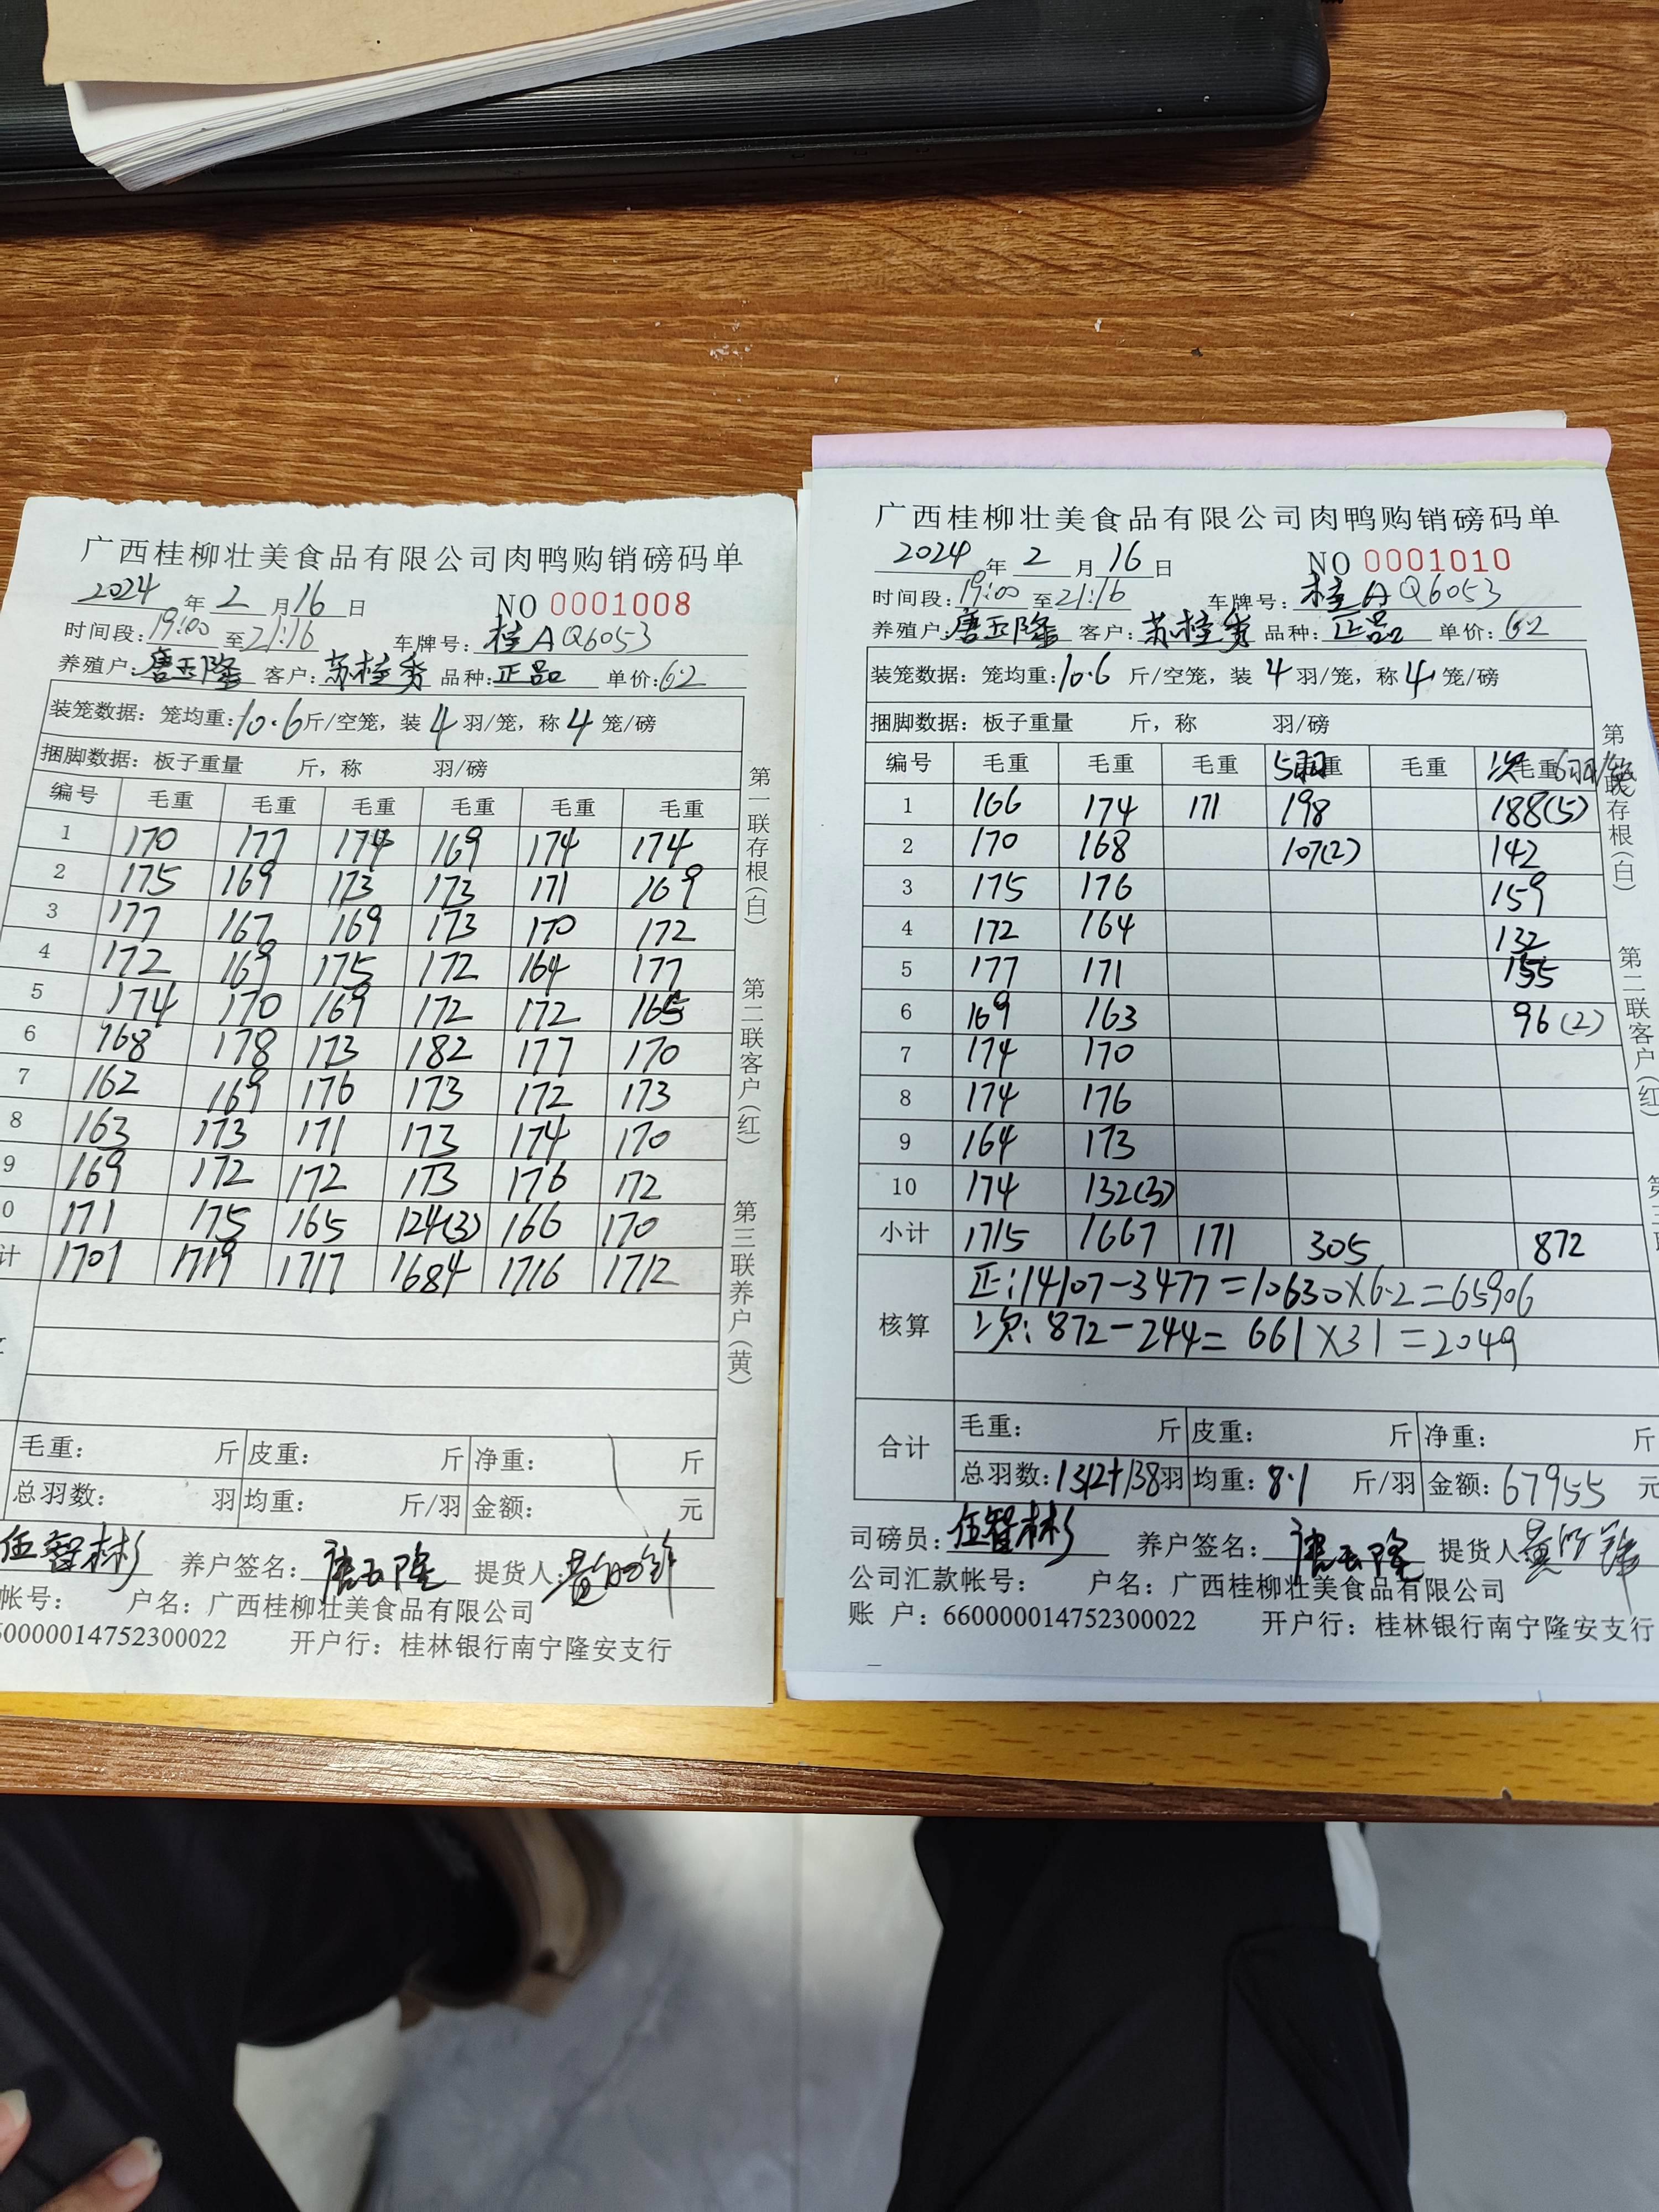 广西桂柳壮美食品有限公司肉鸭购销磅码单
2024 年 2 月 16 日 NO 0001008
时间段: 19:00 至 21:16 车牌号: 桂A Q6053
养殖户: 唐玉隆 客户: 苏桂秀 品种: 正品 单价: 6.2
装笼数据: 笼均重: 10.6 斤/空笼, 装 4 羽/笼, 称 4 笼/磅
捆脚数据: 板子重量 斤, 称 羽/磅
编号 毛重 毛重 毛重 毛重 毛重 毛重
1 170 177 174 169 174 174
2 175 169 173 173 171 169
3 177 167 169 173 170 172
4 172 169 175 172 164 177
5 174 170 169 172 172 165
6 168 178 173 182 177 170
7 162 169 176 173 172 173
8 163 173 171 173 174 170
9 169 172 172 173 176 172
0 171 175 165 124(3) 166 170
计 1701 1719 1717 1684 1716 1712
毛重: 斤 皮重: 斤 净重: 斤
总羽数: 羽 均重: 斤/羽 金额: 元
伍智彬 养户签名: 唐玉隆 提货人:
帐号: 户名: 广西桂柳壮美食品有限公司
60000014752300022 开户行: 桂林银行南宁隆安支行
第一联存根(白) 第二联客户(红) 第三联养户(黄)
广西桂柳壮美食品有限公司肉鸭购销磅码单
2024 年 2 月 16 日 NO 0001010
时间段: 19:00 至 21:16 车牌号: 桂A Q6053
养殖户: 唐玉隆 客户: 苏桂秀 品种: 正品 单价: 6.2
装笼数据: 笼均重: 10.6 斤/空笼, 装 4 羽/笼, 称 4 笼/磅
捆脚数据: 板子重量 斤, 称 羽/磅
编号 毛重 毛重 毛重 5羽 毛重 次毛重 6羽/笼
1 166 174 171 198 188(5)
2 170 168 107(2) 142
3 175 176 159
4 172 164 132
5 177 171 155
6 169 163 96(2)
7 174 170
8 174 176
9 164 173
10 174 132(3)
小计 1715 1667 171 305 872
核算 正: 14107-3477=10630×6.2=65906
次: 872-244= 661×31=2049
合计 毛重: 斤 皮重: 斤 净重: 斤
总羽数: 1312+138羽 均重: 8.1 斤/羽 金额: 67955 元
司磅员: 伍智彬 养户签名: 唐玉隆 提货人
公司汇款帐号: 户名: 广西桂柳壮美食品有限公司
账 户: 660000014752300022 开户行: 桂林银行南宁隆安支行
第 联存根(白) 第二联客户(红)